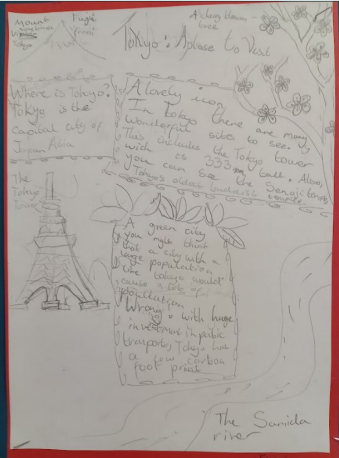 Mount Fugi
Tokyo
A cherry blossom
tree
Tokyo: A place to Visit
Where is Tokyo?
Tokyo is the
capital city of
Japan Asia
A lovely icon
In Tokyo there are many
wonderful sites to see.
This includes the Tokyo tower
wich is 333m tall. Also,
you can see the Senoji temple
Tokyo's oldest buddhist temple
The
Tokyo
tower
A green city
you migh think
that a city with a
large population
like tokyo would
cause a lot of
pollution.
Wrong! with huge
investment in public
transport, Tokyo has
a low carbon
foot print
The Sumida
river